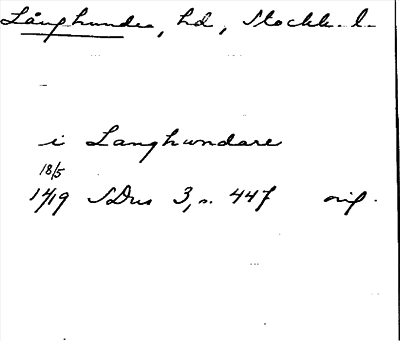 Långhundra, hd, Stockh. l.
i Langhundare
18/5
1419 SDns 3, s. 447 orig.